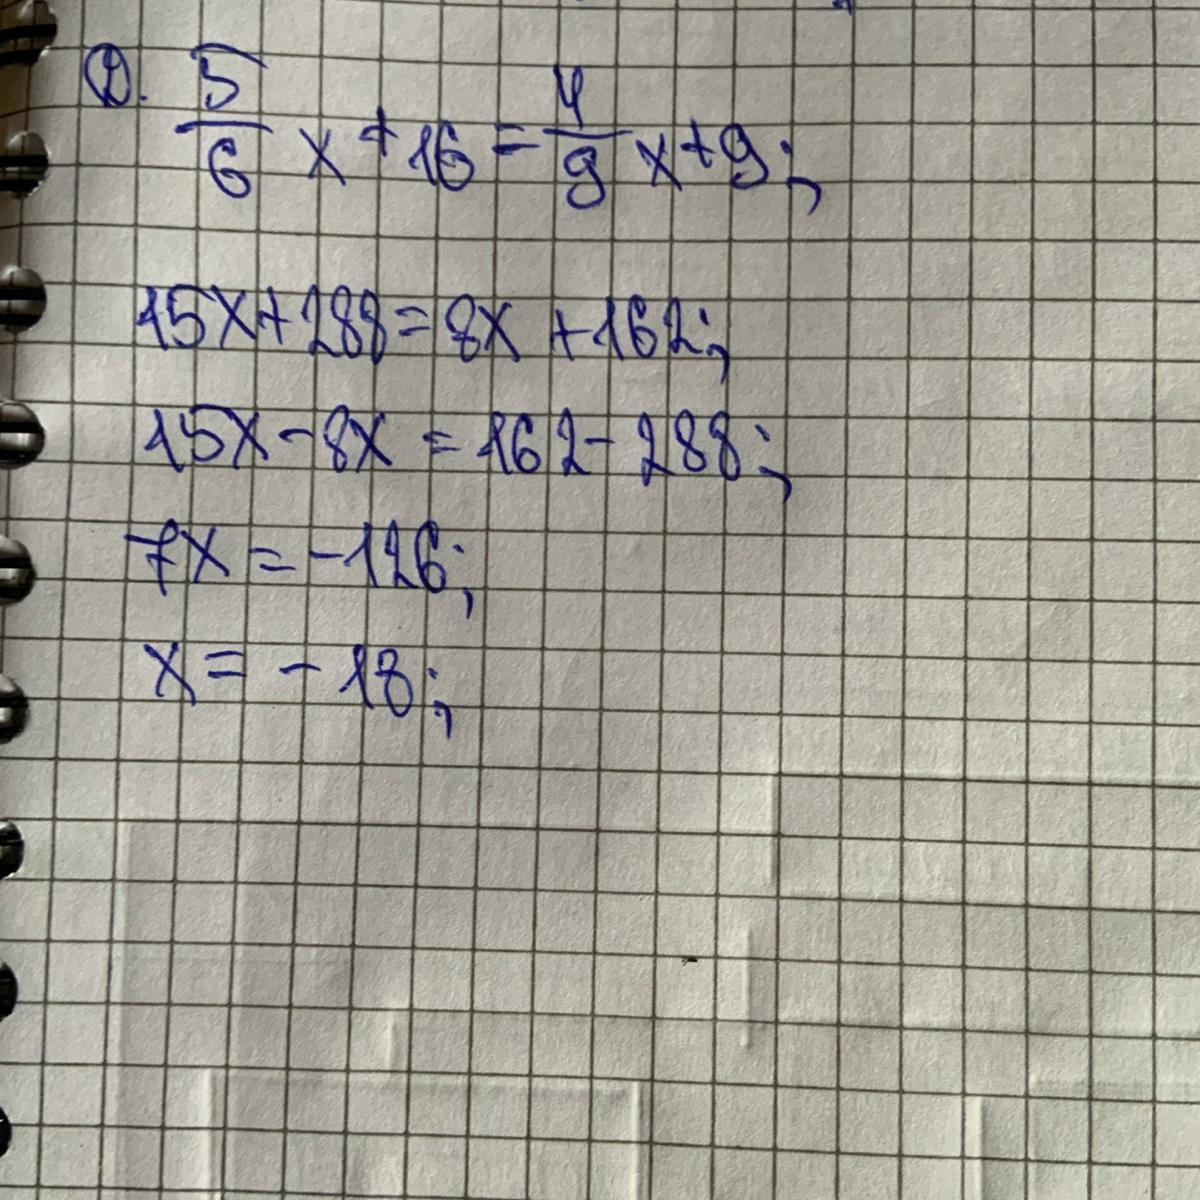 D. 5/6 x + 16 = 4/9 x + 9;
15x + 288 = 8x + 162;
15x - 8x = 162 - 288;
7x = -126;
x = - 18;